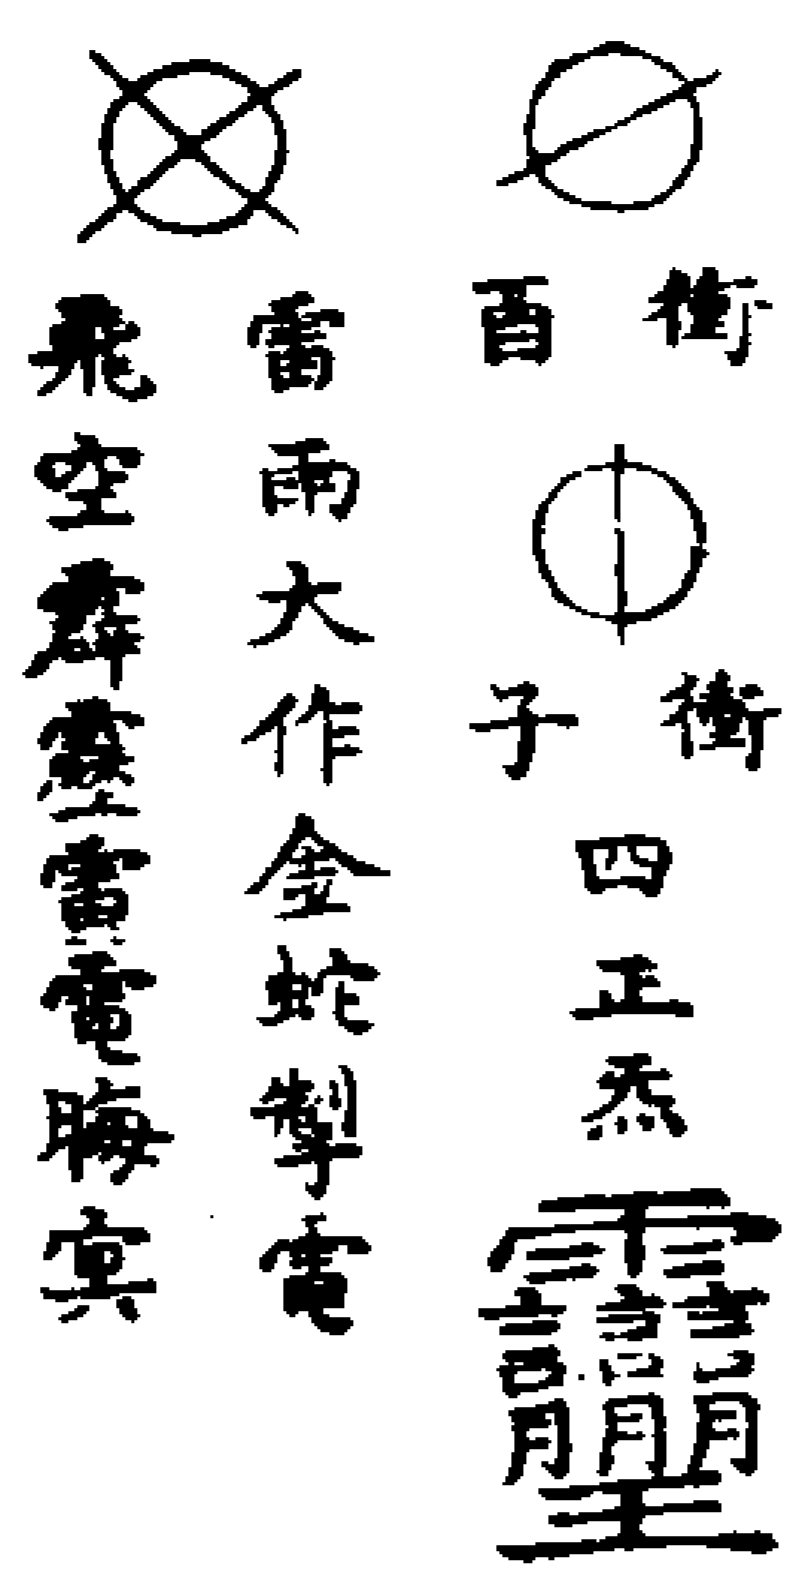 衝酉
衝子
四正炁
雷雨大作金蛇掣電
飛空霹雷電晦冥